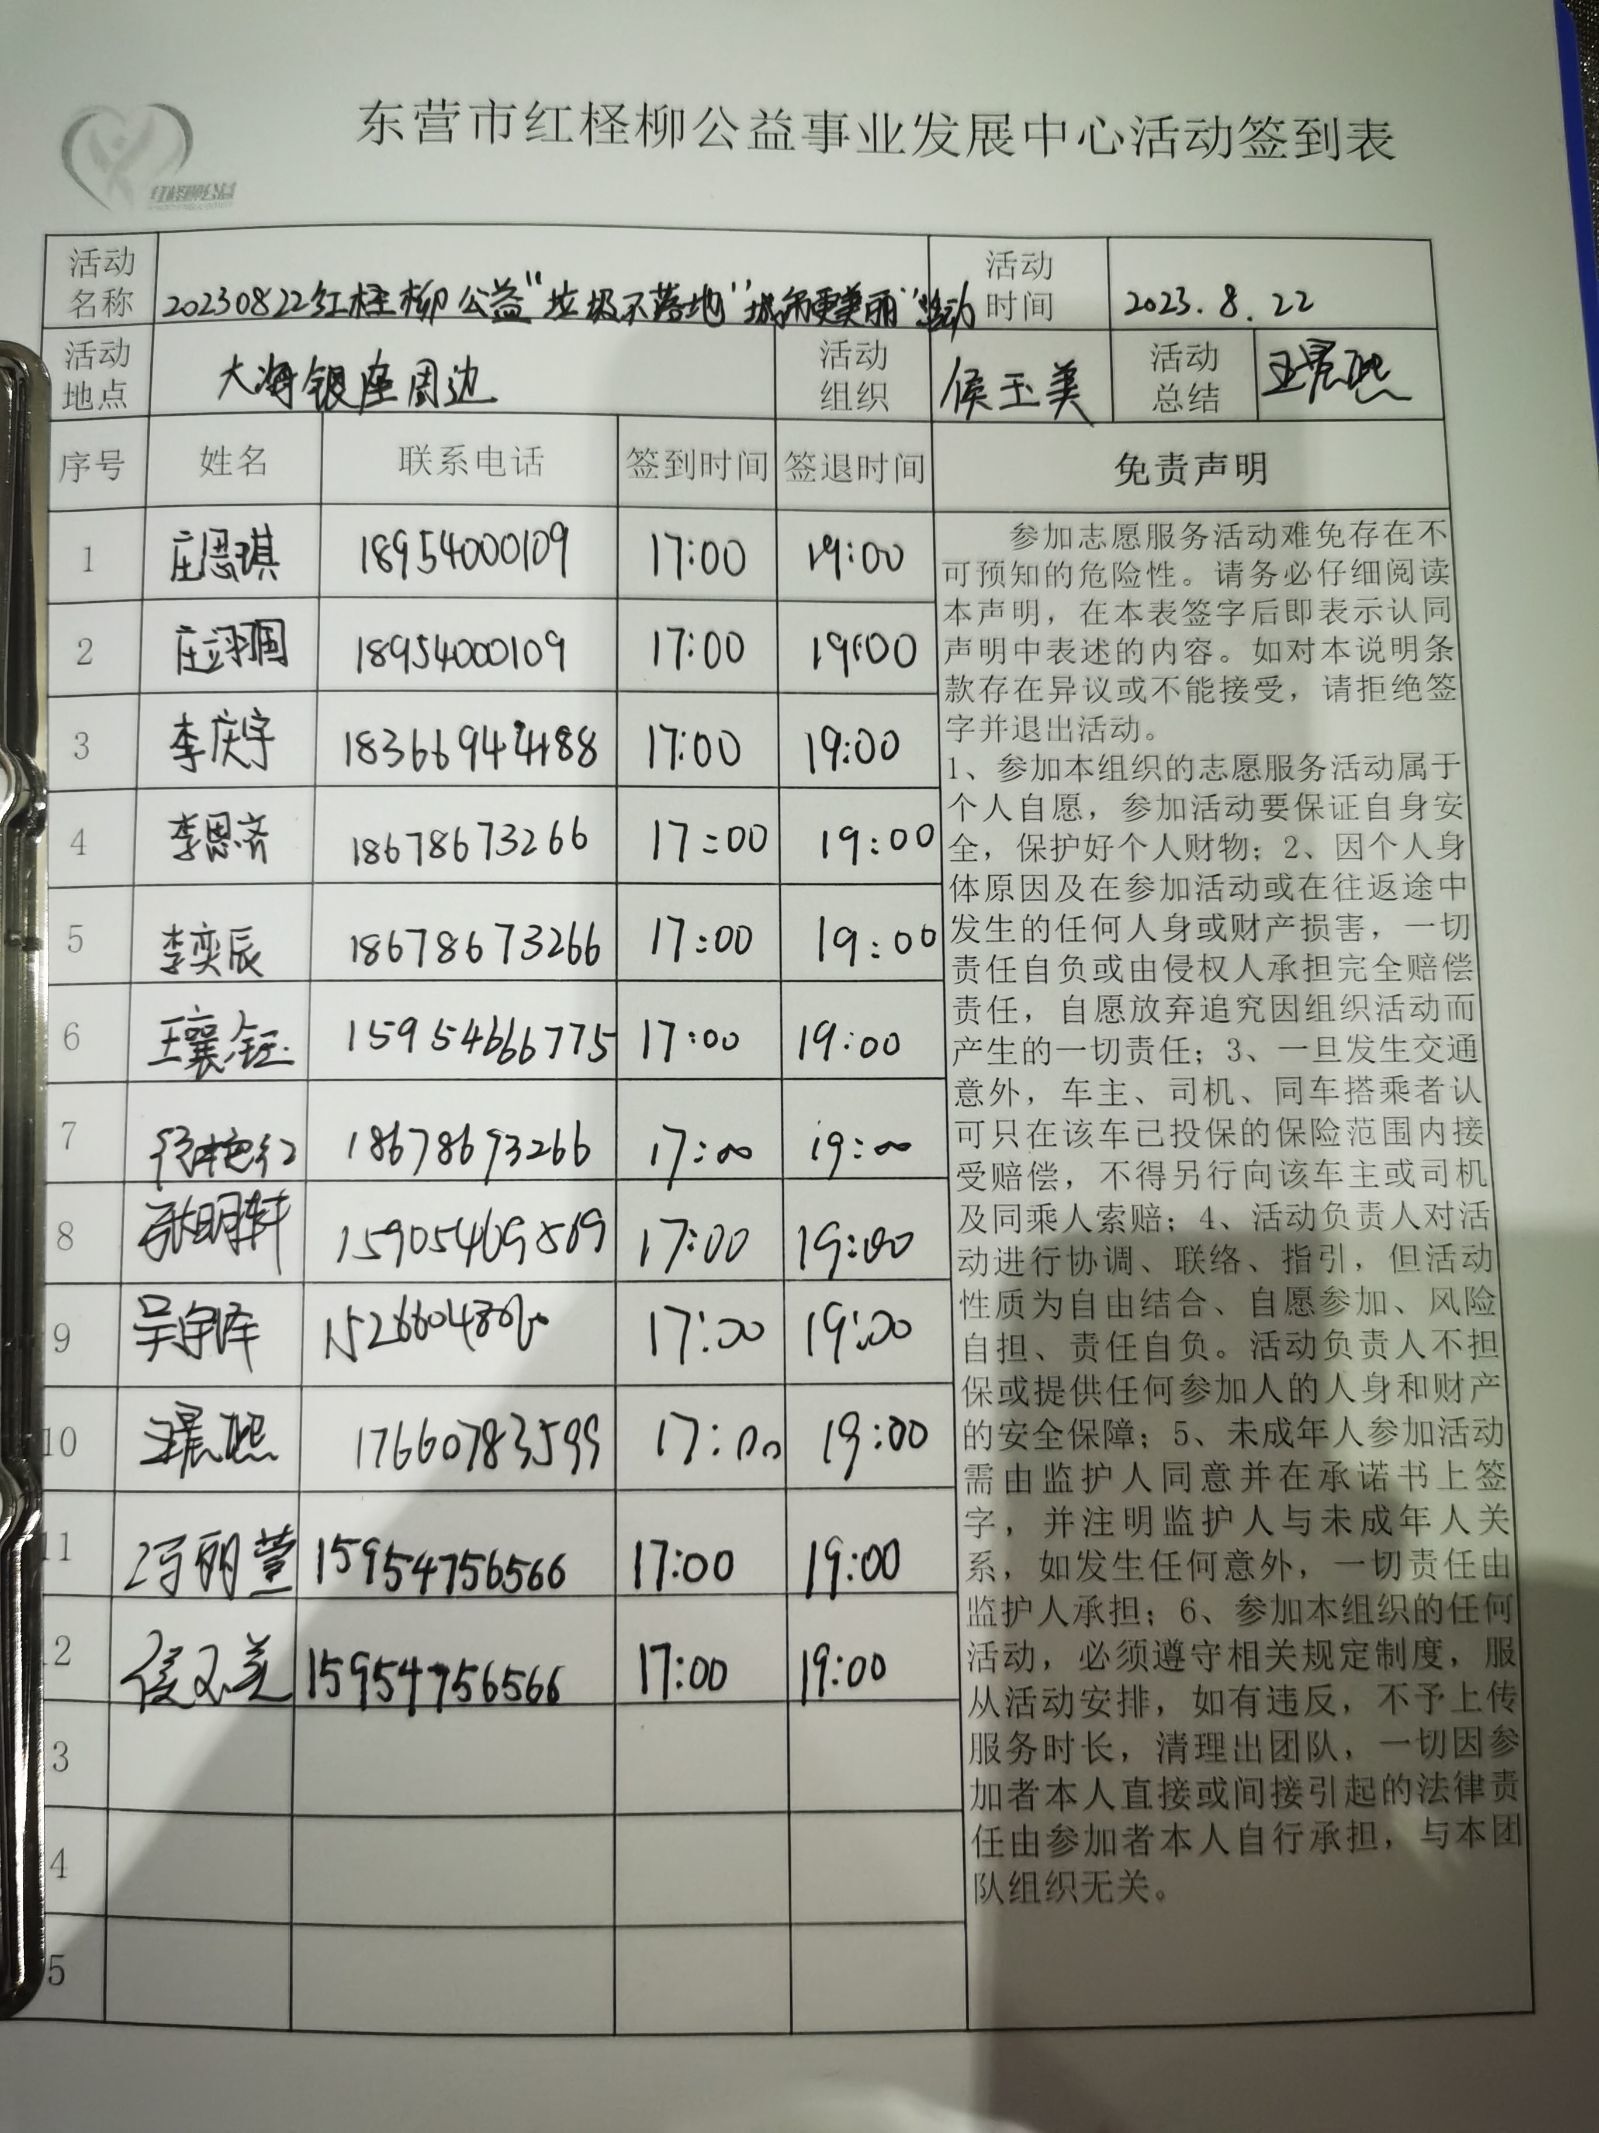 东营市红柽柳公益事业发展中心活动签到表
红柽柳公益
活动名称 20230822红柽柳公益“垃圾不落地”城市更美丽”活动 活动时间 2023.8.22
活动地点 大海银座周边 活动组织 侯玉美 活动总结 王晨熙
序号 姓名 联系电话 签到时间 签退时间 免责声明
1 庄恩琪 18954000109 17:00 19:00
2 18954000109 17:00 19:00
3 李庆宇 18366944188 17:00 19:00
4 李恩齐 18678673266 17:00 19:00
5 李奕辰 18678673266 17:00 19:00
6 王襄钰 15954666775 17:00 19:00
7 18678693266 17:00 19:00
8 张明轩 15905469569 17:00 19:00
9 吴宇泽 17:00 19:00
10 王晨熙 17660783599 17:00 19:00
11 冯丽萱 15954756566 17:00 19:00
12 侯玉美 15954756566 17:00 19:00
3
4
5
参加志愿服务活动难免存在不
可预知的危险性。请务必仔细阅读
本声明，在本表签字后即表示认同
声明中表述的内容。如对本说明条
款存在异议或不能接受，请拒绝签
字并退出活动。
1、参加本组织的志愿服务活动属于
个人自愿，参加活动要保证自身安
全，保护好个人财物；2、因个人身
体原因及在参加活动或在往返途中
发生的任何人身或财产损害，一切
责任自负或由侵权人承担完全赔偿
责任，自愿放弃追究因组织活动而
产生的一切责任；3、一旦发生交通
意外，车主、司机、同车搭乘者认
可只在该车已投保的保险范围内接
受赔偿，不得另行向该车主或司机
及同乘人索赔；4、活动负责人对活
动进行协调、联络、指引，但活动
性质为自由结合、自愿参加、风险
自担、责任自负。活动负责人不担
保或提供任何参加人的人身和财产
的安全保障；5、未成年人参加活动
需由监护人同意并在承诺书上签
字，并注明监护人与未成年人关
系，如发生任何意外，一切责任由
监护人承担；6、参加本组织的任何
活动，必须遵守相关规定制度，服
从活动安排，如有违反，不予上传
服务时长，清理出团队，一切因参
加者本人直接或间接引起的法律责
任由参加者本人自行承担，与本团
队组织无关。